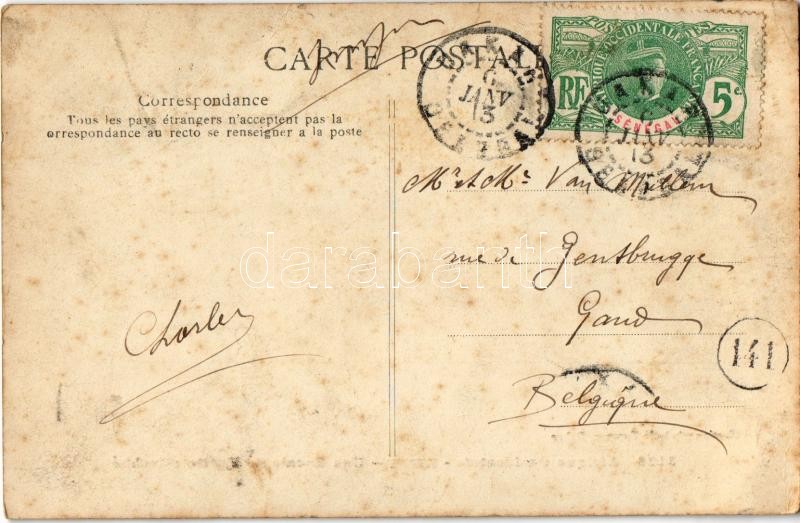 CARTE POSTALE
Correspondance
Tous les pays étrangers n'acceptent pas la
orrespondance au recto se renseigner a la poste
DAKAR
6
JANV
13
SENEGAL
POSTES
AFRIQUE OCCIDENTALE FRANÇAISE
RF
5c
SÉNÉGAL
DAKAR
JANV
13
Mr et Me Van
rue de Gentbrugge
Gand
Belgique
Charles
141
darabanth